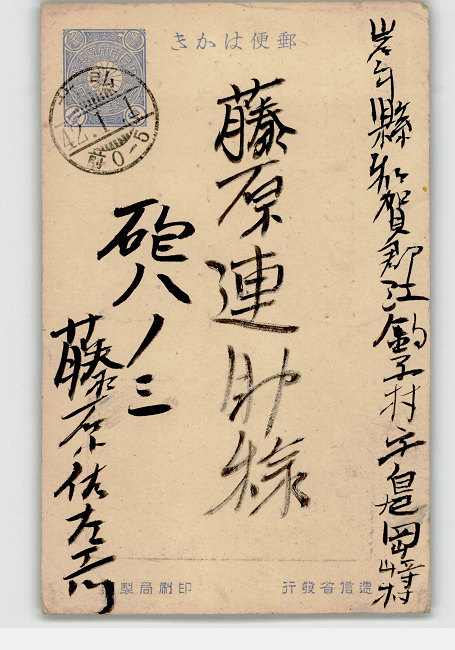 郵便はかき
岩手縣和賀郡江釣子村字鳩岡崎村
藤原連助様
砲八ノ三
藤原佐左エ門
弘
42.1.1
前0-5
印刷局製
遞信省發行